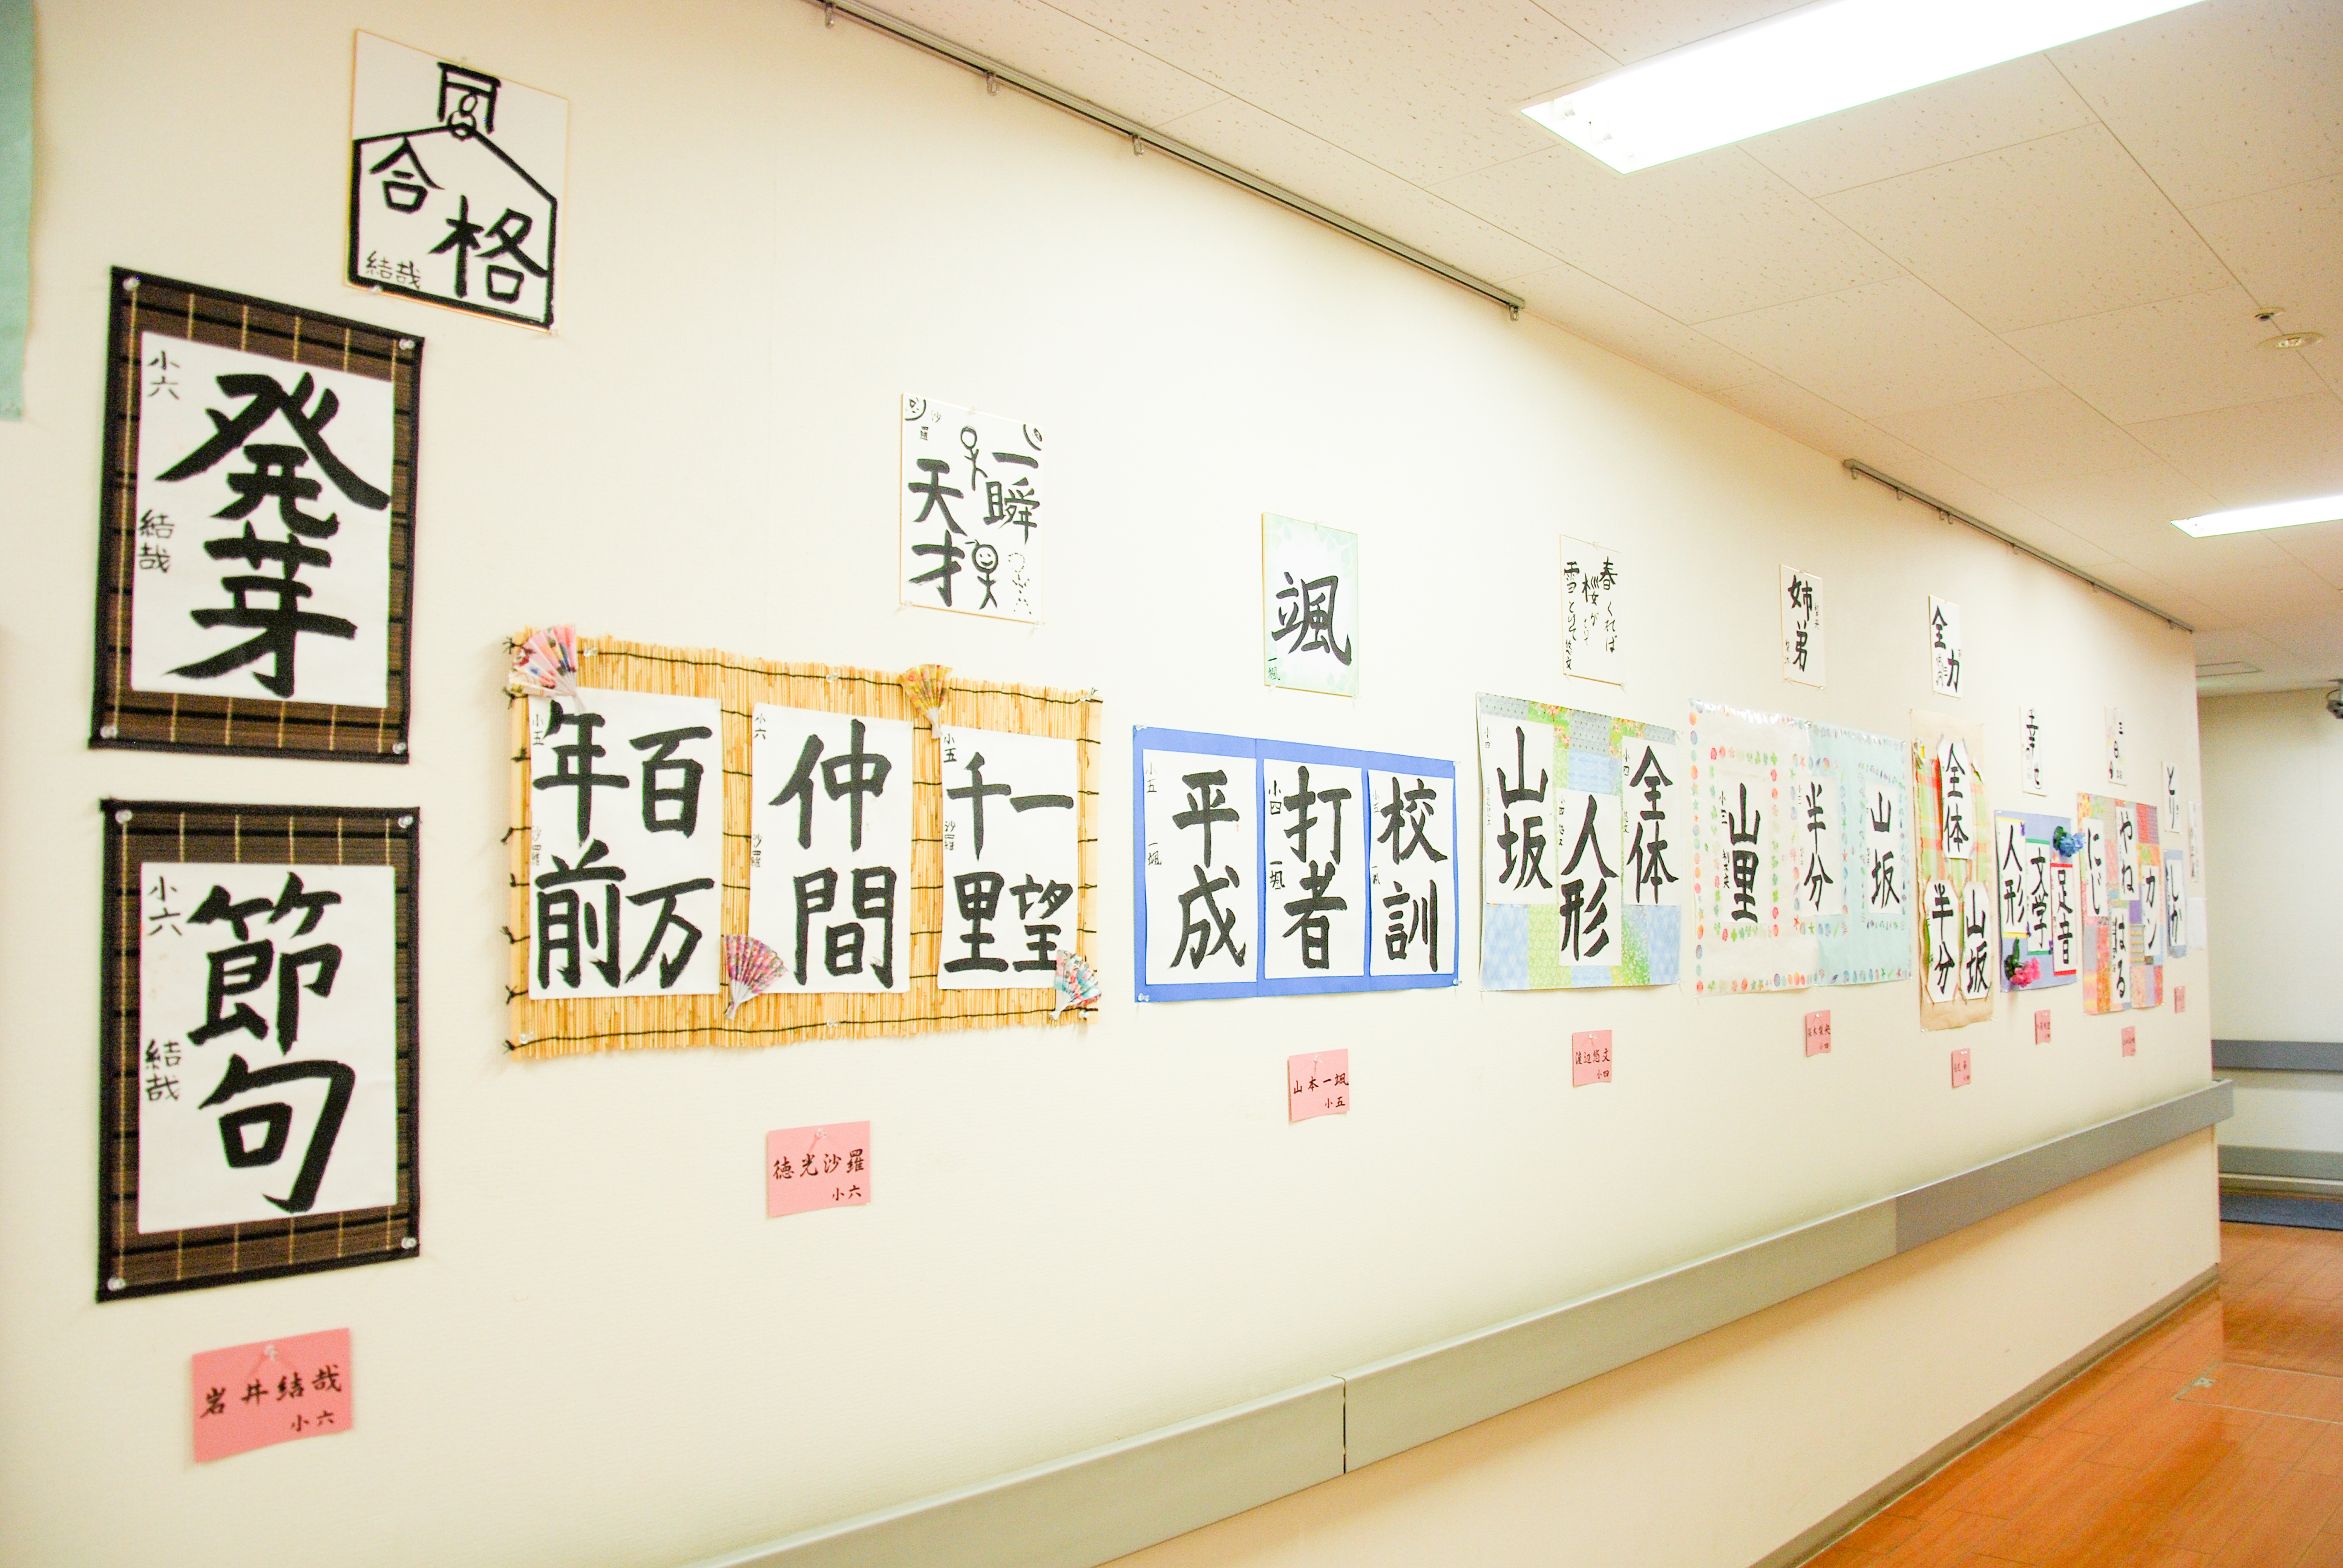 合格
結哉
小六
発芽
結哉
小六
節句
結哉
岩井結哉
小六
沙羅
一瞬
天才
小五
百万
年前
沙羅
小六
仲間
沙羅
小五
一望
千里
沙羅
徳光沙羅
小六
颯
一颯
小五
平成
一颯
小四
打者
一颯
校訓
山本一颯
小五
春くれば
桜が
雪
小四
山坂
小四
人形
小四
全体
渡辺悠文
小四
姉弟
小三
山里
半分
山坂
全力
全体
半分
山坂
人形
文学
足音
にじ
やね
はる
カン
とり
しか